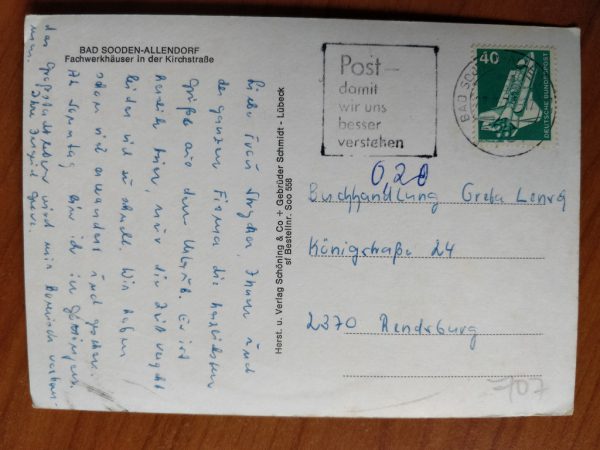 BAD SOODEN-ALLENDORF
Fachwerkhäuser in der Kirchstraße
Liebe Frau Ihnen und
der ganzen Firma die herzlichsten
Grüße aus dem Urlaub. Es ist
hier, nur die Zeit vergeht
leider viel zu schnell. Wir haben
schon viel gewandert und gesehen.
Ab Sonntag bin ich in Göttingen,
das
Ihre
Herst. u. Verlag Schöning & Co + Gebrüder Schmidt - Lübeck
st Bestellnr. Soo 558
Post-
damit
wir uns
besser
verstehen
BAD SOO
40
DEUTSCHE BUNDESPOST
020
Buchhandlung Greta
Königstraße 24
2370 Rendsburg
-707